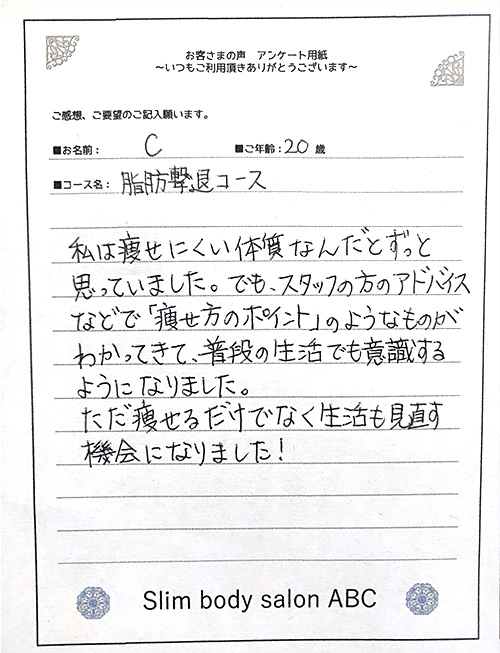 お客さまの声　アンケート用紙
～いつもご利用頂きありがとうございます～
ご感想、ご要望のご記入願います。
■お名前： C ■ご年齢：20 歳
■コース名： 脂肪撃退コース
私は痩せにくい体質なんだとずっと
思っていました。でも、スタッフの方のアドバイス
などで「痩せ方のポイント」のようなものが
わかってきて、普段の生活でも意識する
ようになりました。
ただ痩せるだけでなく生活も見直す
機会になりました！
Slim body salon ABC